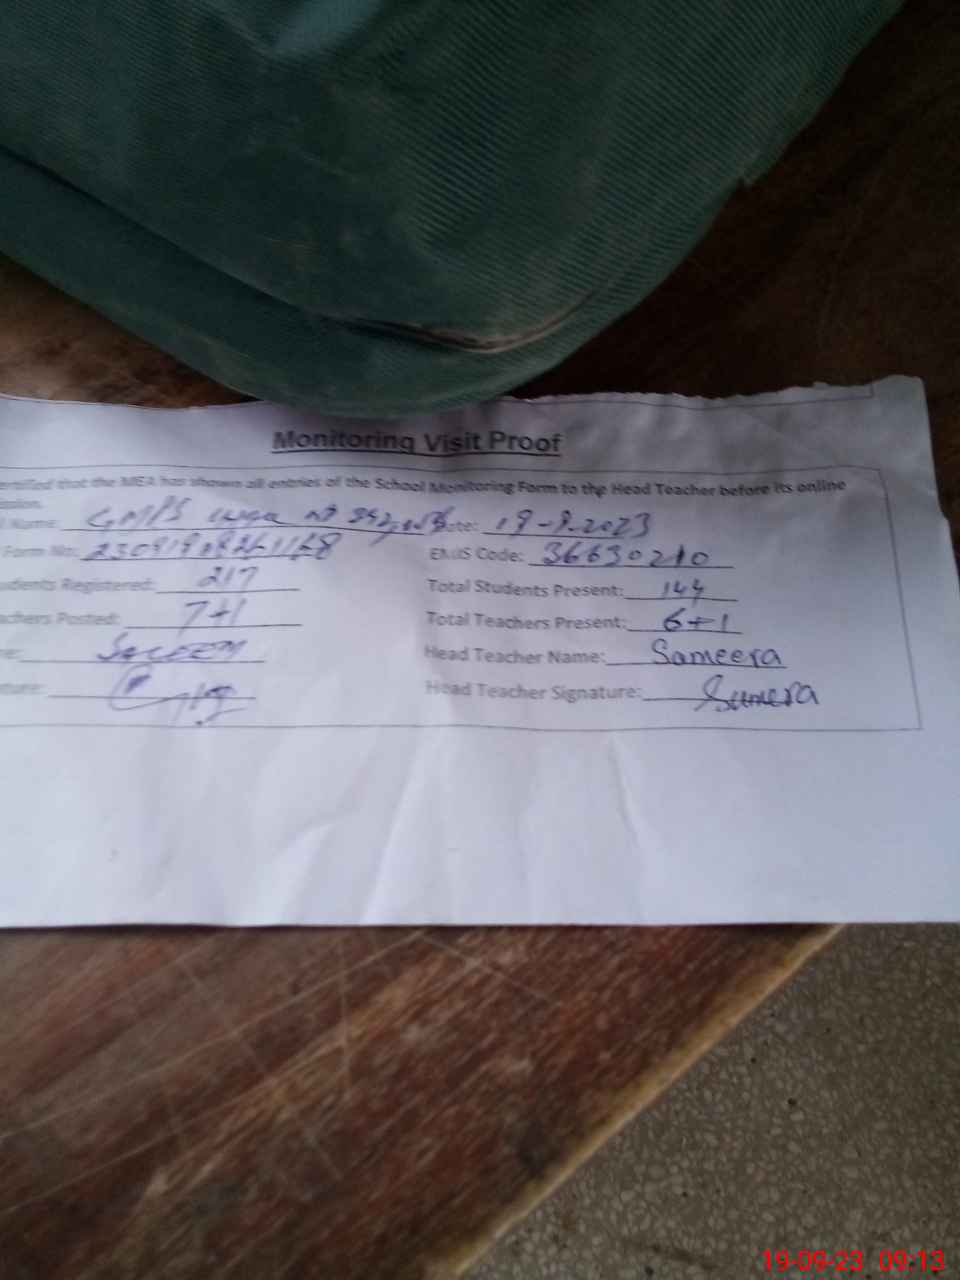 Monitoring Visit Proof
ertified that the MEA has shown all entries of the School Monitoring Form to the Head Teacher before its online
l Name: GMPS Date: 19-9-2023
Form No: EMIS Code: 36630210
udents Registered: 217 Total Students Present: 144
achers Posted: 7+1 Total Teachers Present: 6+1
me: SALEEM Head Teacher Name: Sameera
ature: Head Teacher Signature: Sumera
19-09-23 09:13